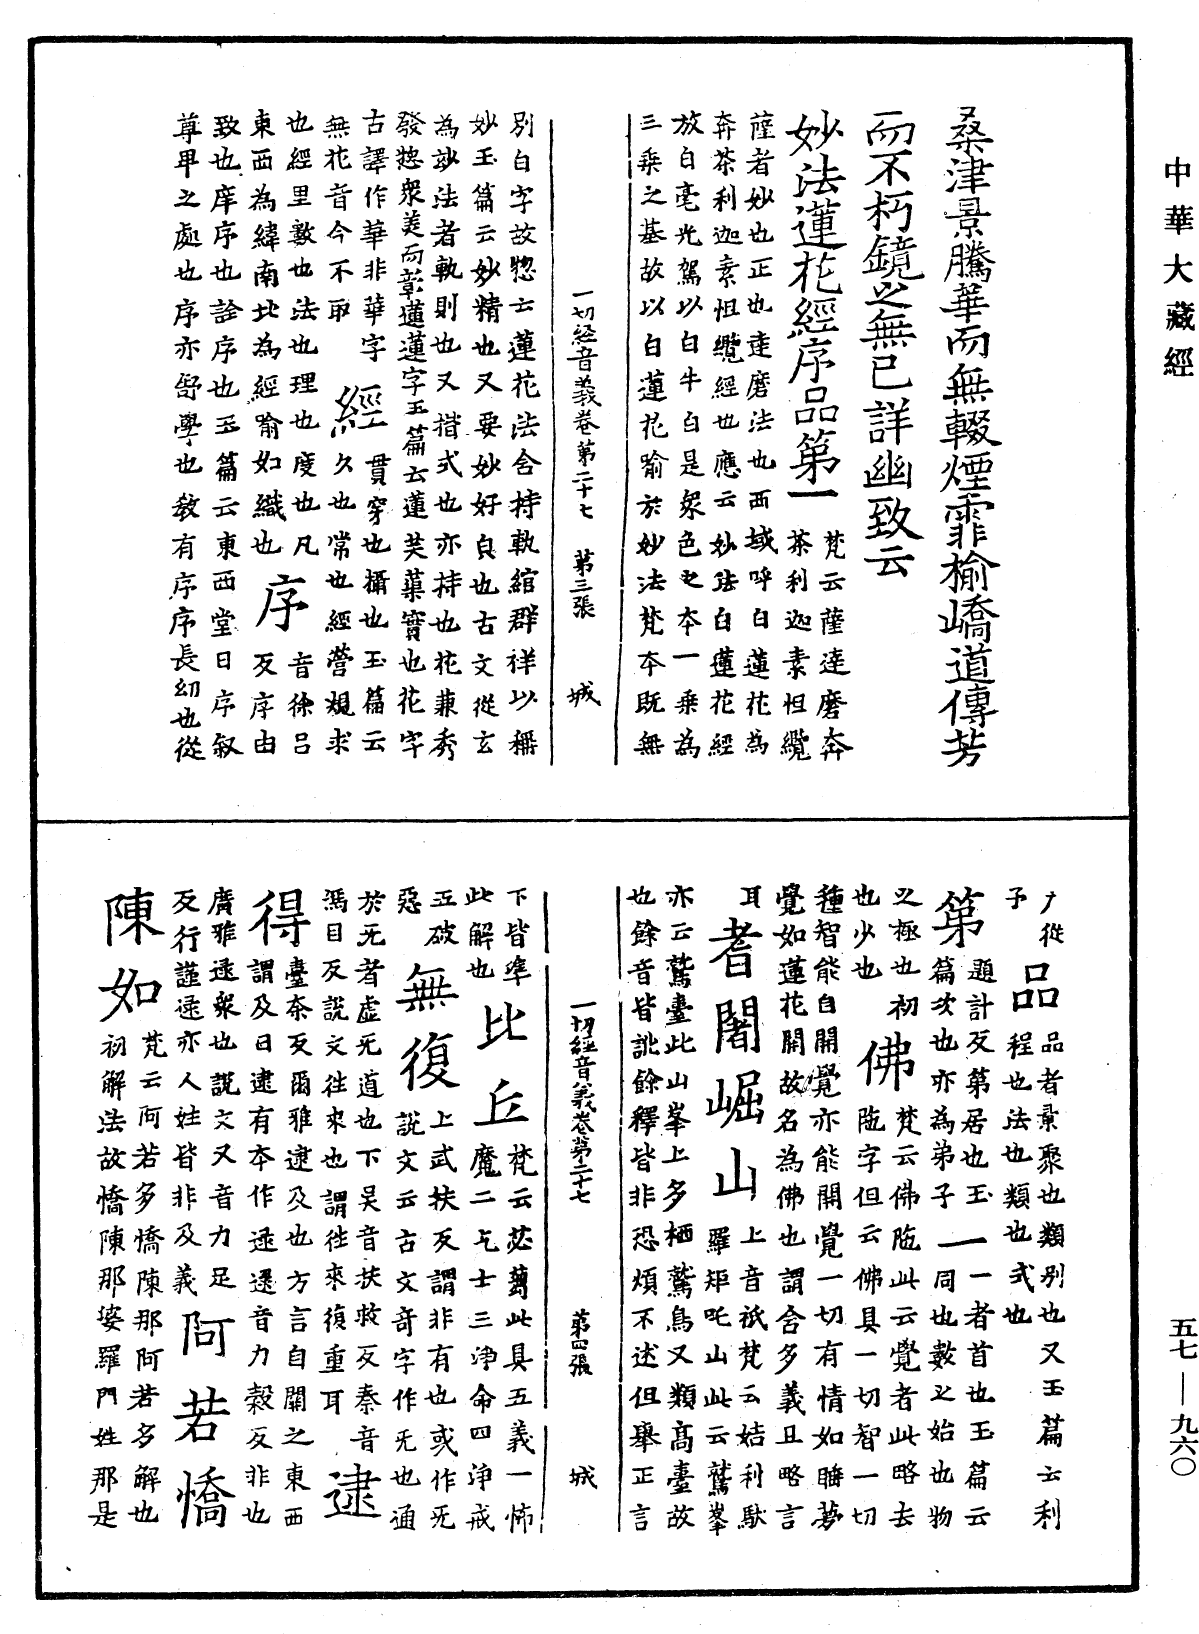 中華大藏經
桑津景騰華而無輟煙霏榆嶠道傳芳
而不朽鏡之無已詳幽致云
妙法蓮花經序品第一 梵云薩達磨奔
茶利迦素怛纜
薩者妙也正也達磨法也西域呼白蓮花為
奔茶利迦素怛纜經也應云妙法白蓮花經
放白毫光駕以白牛白是衆色之本一乘為
三乘之基故以白蓮花喻於妙法梵本既無
一切經音義卷第二十七 第三張 城
別白字故惣云蓮花法含持軌綰群祥以稱
妙玉篇云妙精也又要妙好皃也古文從玄
為玅法者軌則也又揩式也亦持也花兼秀
發惣衆美而彰蓮蓮字玉篇云蓮芙蕖實也花字
古譯作華非華字
無花音今不取 經 貫穿也攝也玉篇云
久也常也經營規求
也經里數也法也理也度也凡
東西為緯南北為經喻如織也 序 音徐呂
反序由
致也庠序也詮序也玉篇云東西堂曰序敘
尊卑之處也序亦舒學也教有序序長幼也從
广從
予 品 品者彙聚也類別也又玉篇云利
程也法也類也式也
第 題計反第居也玉
篇次也亦為弟子 一 一者首也玉篇云
同也數之始也物
之極也初
也少也 佛 梵云佛陁此云覺者此略去
陁字但云佛具一切智一切
種智能自開覺亦能開覺一切有情如睡夢
覺如蓮花開故名為佛也謂含多義且略言
耳 耆闍崛山 上音祇梵云姞利馱
羅矩吒山此云鷲峯
亦云鷲臺此山峯上多栖鷲鳥又類高臺故
也餘音皆訛餘釋皆非恐煩不述但舉正言
一切經音義卷第二十七 第四張 城
下皆准
此解也 比丘 梵云苾蒭此具五義一怖
魔二乞士三淨命四淨戒
五破
惡 無復 上武扶反謂非有也或作无
說文云古文奇字作无也通
於无者虛无道也下吴音扶救反秦音
馮目反說文往來也謂往來復重耳 逮
得 臺奈反爾雅逮及也方言自關之東西
謂及曰逮有本作逯逯音力穀反非也
廣雅逯衆也說文又音力足
反行謹逯亦人姓皆非及義 阿若憍
陳如 梵云阿若多憍陳那阿若多解也
初解法故憍陳那婆羅門姓那是
五七—九六〇